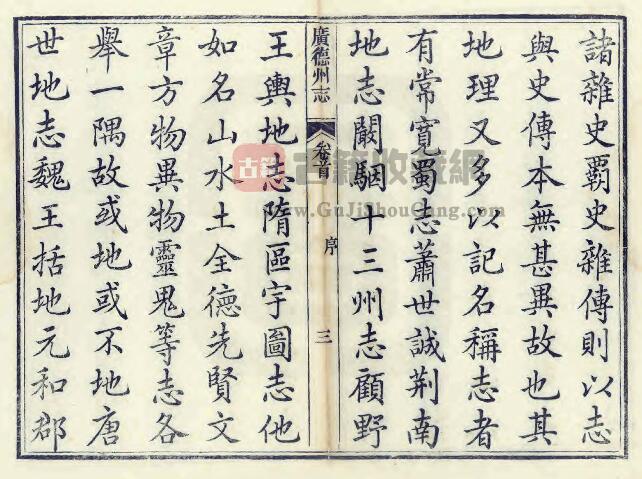 諸雜史霸史雜傳則以志
與史傳本無甚異故也其
地理又多以記名稱志者
有常寬蜀志蕭世誠荆南
地志闞駰十三州志顧野
廣德州志
卷首
序
三
王輿地志隋區宇圖志他
如名山水土全德先賢文
章方物異物靈鬼等志各
舉一隅故或地或不地唐
世地志魏王括地元和郡
古籍
古籍收藏網
www.GuJiShouCang.com